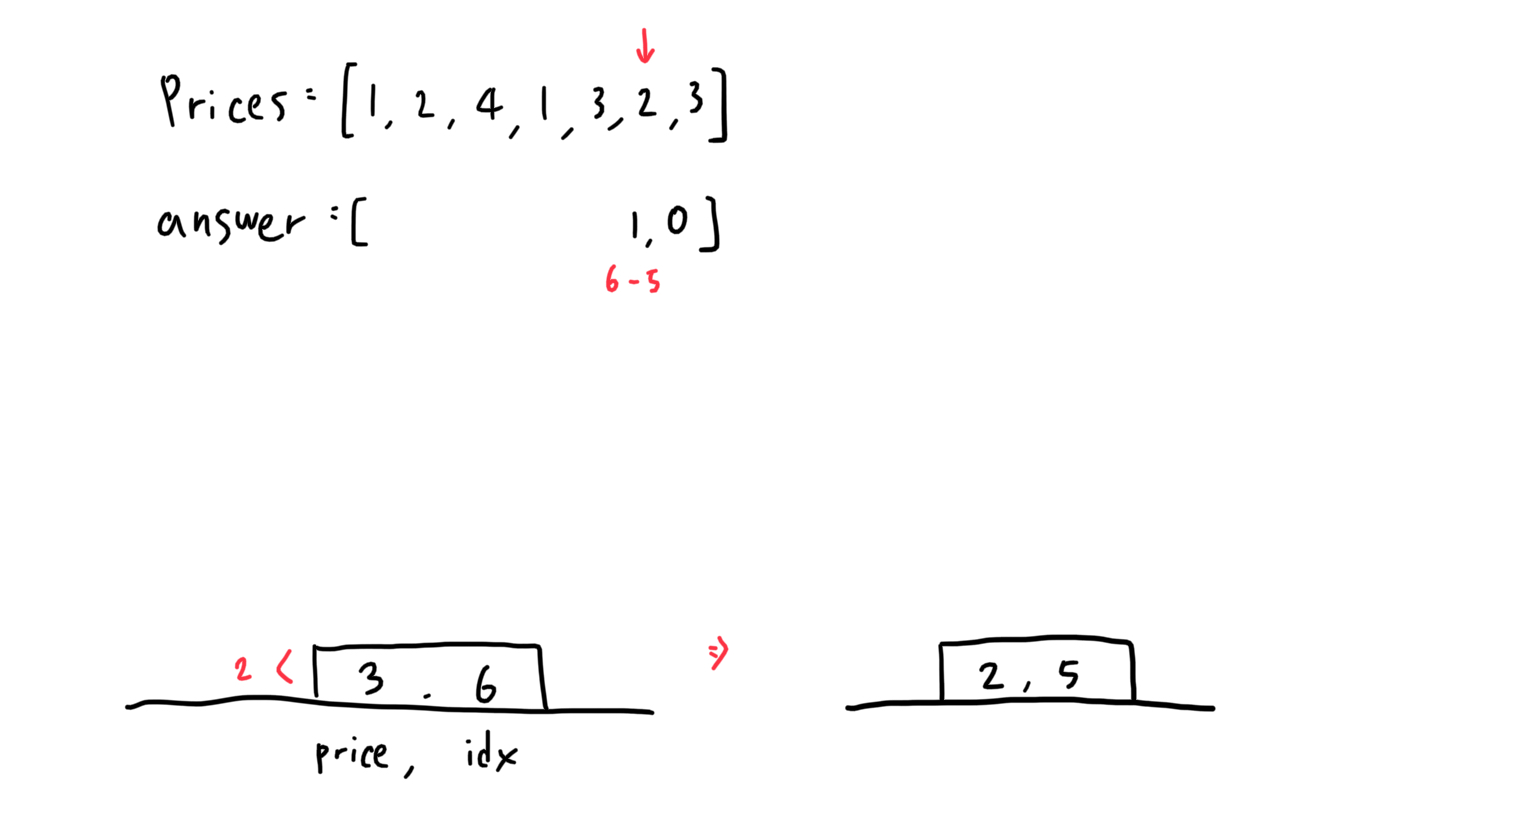 ↓
Prices = [1, 2, 4, 1, 3, 2, 3]
answer = [ 1, 0]
6 - 5
2 < 3 . 6 ⇒ 2, 5
price, idx